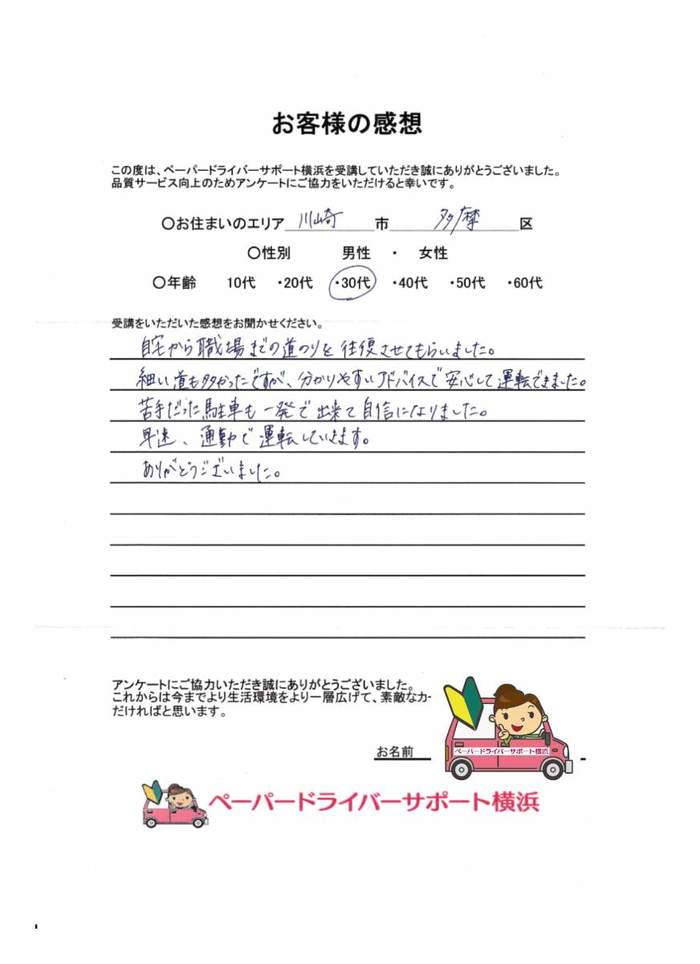 お客様の感想
この度は、ペーパードライバーサポート横浜を受講していただき誠にありがとうございました。
品質サービス向上のためアンケートにご協力をいただけると幸いです。
〇お住まいのエリア 川崎 市 多摩 区
〇性別 男性 ・ 女性
〇年齢 10代 ・20代 ・30代 ・40代 ・50代 ・60代
受講をいただいた感想をお聞かせください。
自宅から職場までの道のりを往復させてもらいました。
細い道も多かったですが、分かりやすいアドバイスで安心して運転できました。
苦手だった駐車も一発で出来て自信になりました。
早速、通勤で運転していきます。
ありがとうございました。
アンケートにご協力いただき誠にありがとうございました。
これからは今までより生活環境をより一層広げて、素敵なカ-
だければと思います。
お名前
ペーパードライバーサポート横浜
ペーパードライバーサポート横浜